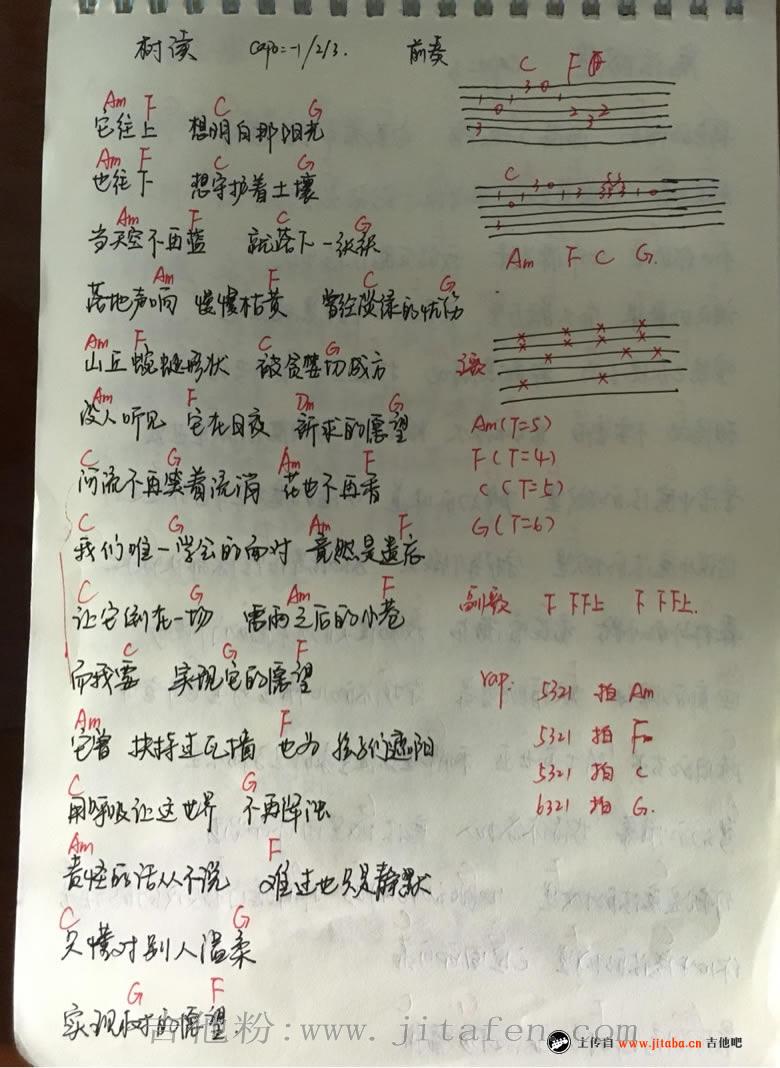 树读 capo=-1/2/3. 前奏
C F
Am F C G
它往上 想明白那阳光
Am F C G
也往下 想守护着土壤
C
Am F C G
当天空不再蓝 就落下一张张
Am F C G.
Am F C G
落地声响 慢慢枯黄 曾经淡绿的忧伤
Am F C G
山丘蜿蜒形状 被贪婪切成方
主歌
Am F Dm G
没人听见 它在日夜 祈求的愿望
Am (T=5)
F (T=4)
C G Am F
河流不再笑着流淌 花也不再香
C (T=5)
G (T=6)
C G Am F
我们唯一学会的面对 竟然是遗忘
C G Am F
让它倒在一场 雷雨之后的小巷
副歌 下 下下上 下 下下上.
C G F
而我要 实现它的愿望
rap: 5321 拍 Am
5321 拍 Fm
5321 拍 C
6321 拍 G.
Am F
它曾 扶持过瓦墙 也为 孩子们遮阳
C G
用呼吸让这世界 不再浑浊
Am F
责怪的话从不说 难过也只是静默
C G
只懂对别人温柔
G F
实现树的愿望
吉他粉:www.jitafen.com
上传自 www.jitaba.cn 吉他吧